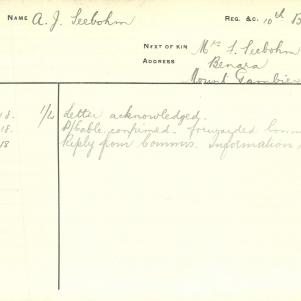 NAME A. J. Seebohm
REG. &C. 10th B
NEXT OF KIN Mrs S. Seebohm
ADDRESS Benara
Mount Gambier
8. 1/L Letter acknowledged.
18. D/Cable confirmed. forwarded Comm
18 Reply from Commis. Information